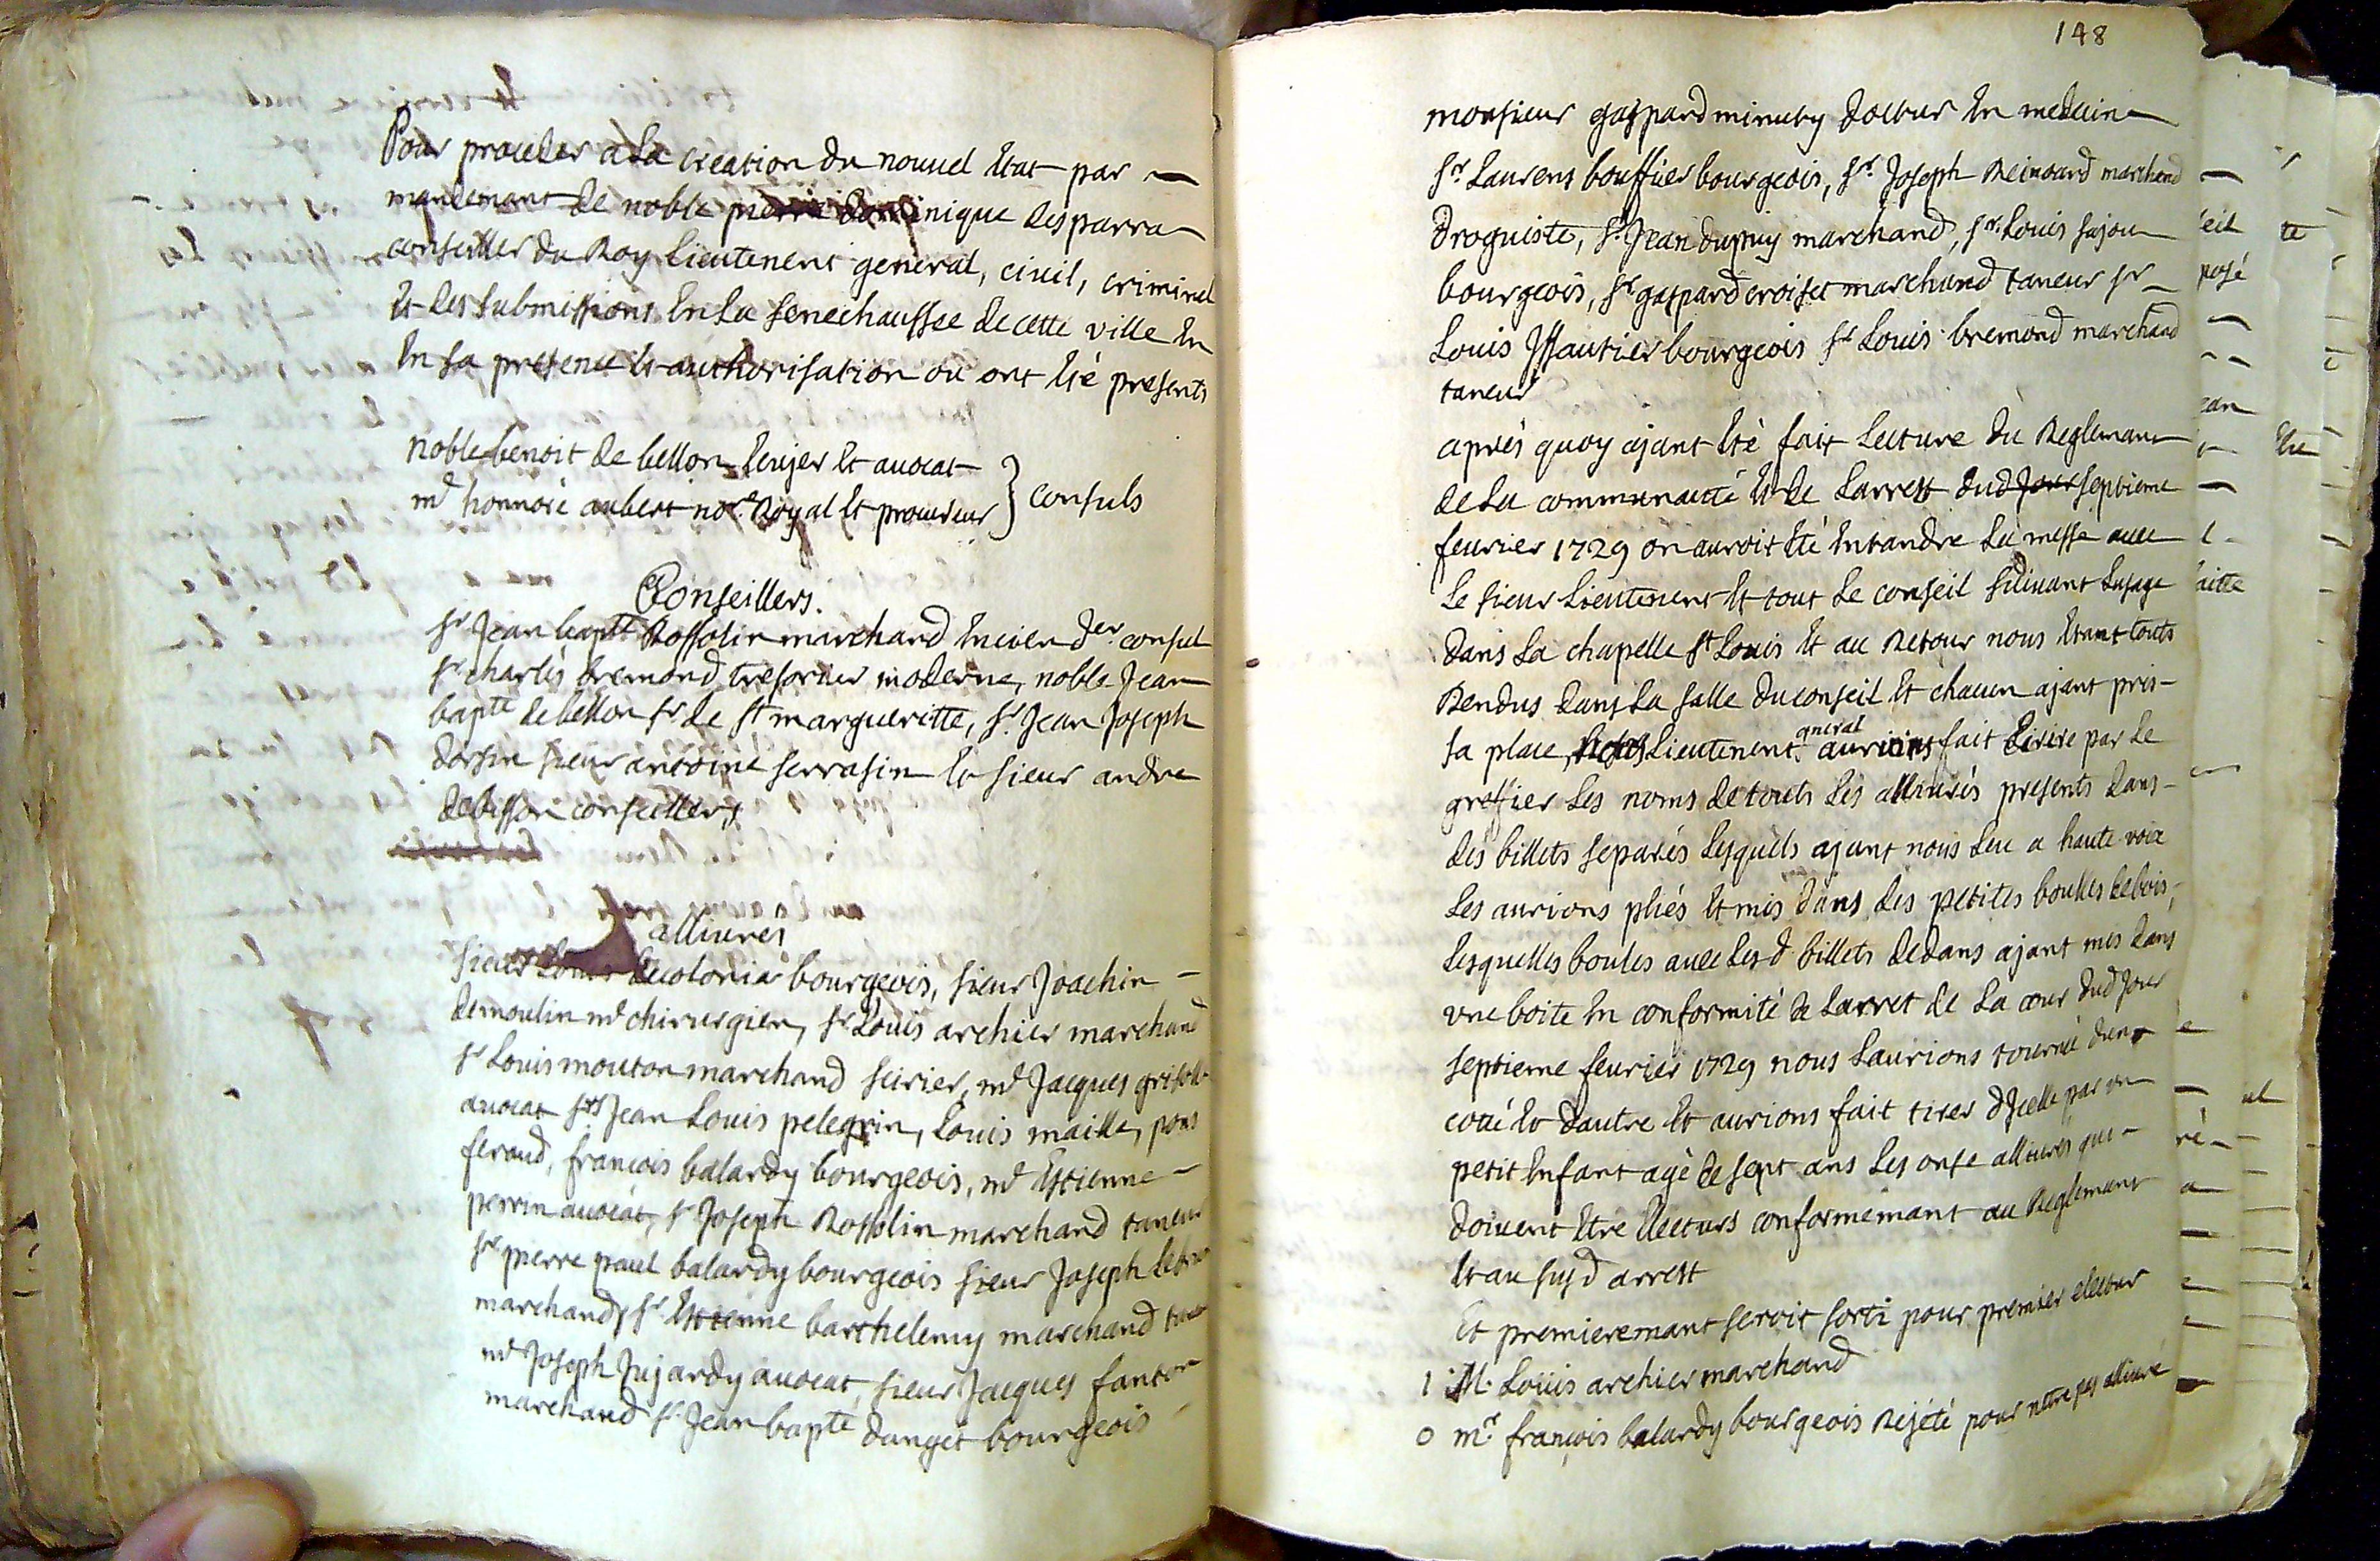 Pour proceder a La creation du nouuel Etat par
mandemant de noble pierre dominique desparra
conseiller du Roy Lieutenent general, ciuil, criminel
Et des submissions En La Senechaussee de cette ville En
En sa presence Et authorisation ou ont Eté presents
noble benoit de bellon Ecujer Et auocat
me honnoré aubert nore Royal Et procureur } consuls
Conseillers.
Sr Jean bapte Rossolin marchand Encien der consul
Sr charles bremond tresorier moderne, noble Jean
bapte de bellon Sr de St margueritte, Sr Jean Joseph
dorsin sieur antoine serrasin Et sieur andre
debisson conseillers
alliures
sieur Louis decolonia bourgeois, sieur Joachin
demoulin me chirurgien, Sr Louis archier marchand
Sr Louis mouton marchand sirier, me Jacques grisolle
auocat Srs Jean Louis pelegrin, Louis maille, pons
feraud, francois balardy bourgeois, me Estienne
perrin auocat, Sr Joseph Rossolin marchand taneur
Sr pierre paul balardy bourgeois sieur Joseph
marchand, Sr Estienne barthelemy marchand
me Joseph Jujardy auocat, sieur Jacques fanton
marchand Sr Jean bapte danget bourgeois
148
monsieur gaspard minuty docteur En medecine
Sr Laurens bouffier bourgeois, Sr Joseph Reinoard marchand
droguiste, Sr Jean dupuy marchand, Sr Louis sajou
bourgeois, Sr gaspard croiset marchand taneur Sr
Louis Jssautier bourgeois Sr Louis bremond marchand
taneur
aprés quoy ajant Eté fait Lecture du Reglemant
de La communauté Et de Larrest dud Jour septieme
feurier 1729 on auroit Eté Entandre La messe auec
Le sieur Lieutenent Et tout Le conseil suiuant Lusage
dans La chapelle St Louis Et au Retour nous Etant touts
Rendus dans La salle du conseil Et chacun ajant pris
sa place, Lieutenent general aurions fait Ecrire par Le
greffier Les noms de touts Les alliurés presents dans
des billets separés Lesquels ajant nous Leu a haute voix
Les aurions pliés Et mis dans des petites boulles de bois,
Lesquelles boules auec Lesd billets dedans ajant mis dans
vne boite En conformité de Larret de La cour dud Jour
septieme feurier 1729 nous Laurions tourné dun
coté Et dautre Et aurions fait tirer dJcelle par vn
petit Enfant agé de sept ans Les onse alliurés qui
doiuent Etre Electurs conformemant au Reglemant
Et au susd arrest
Et premieremant seroit sorti pour premier electur
1 M. Louis archier marchand
0 mr. françois balardy bourgeois Rejété pour netre pas alliuré